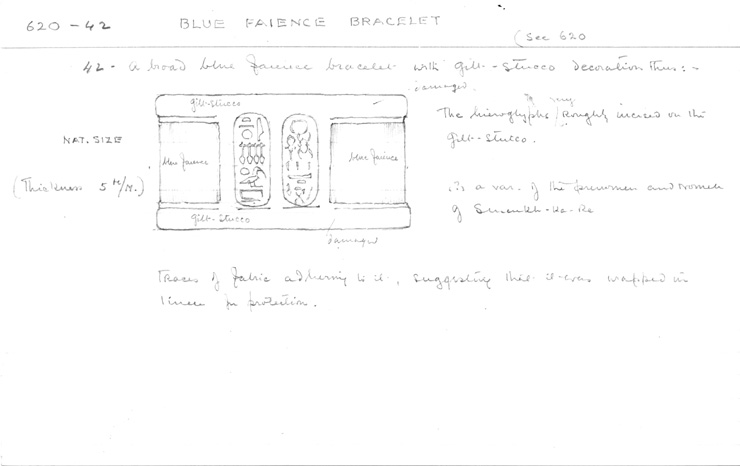 620 - 42 BLUE FAIENCE BRACELET
(See 620
42 - A broad blue faience bracelet with gilt-stucco decoration thus:-
damaged.
gilt-stucco
The hieroglyphs very roughly incised on the
gilt-stucco.
NAT. SIZE
blue faience
blue faience
(Thickness 5 M/M.)
is a var. of the prenomen and nomen
of Smenkh-ka-Re
gilt-stucco
damaged
Traces of fabric adhering to it, suggesting that it was wrapped in
linen for protection.